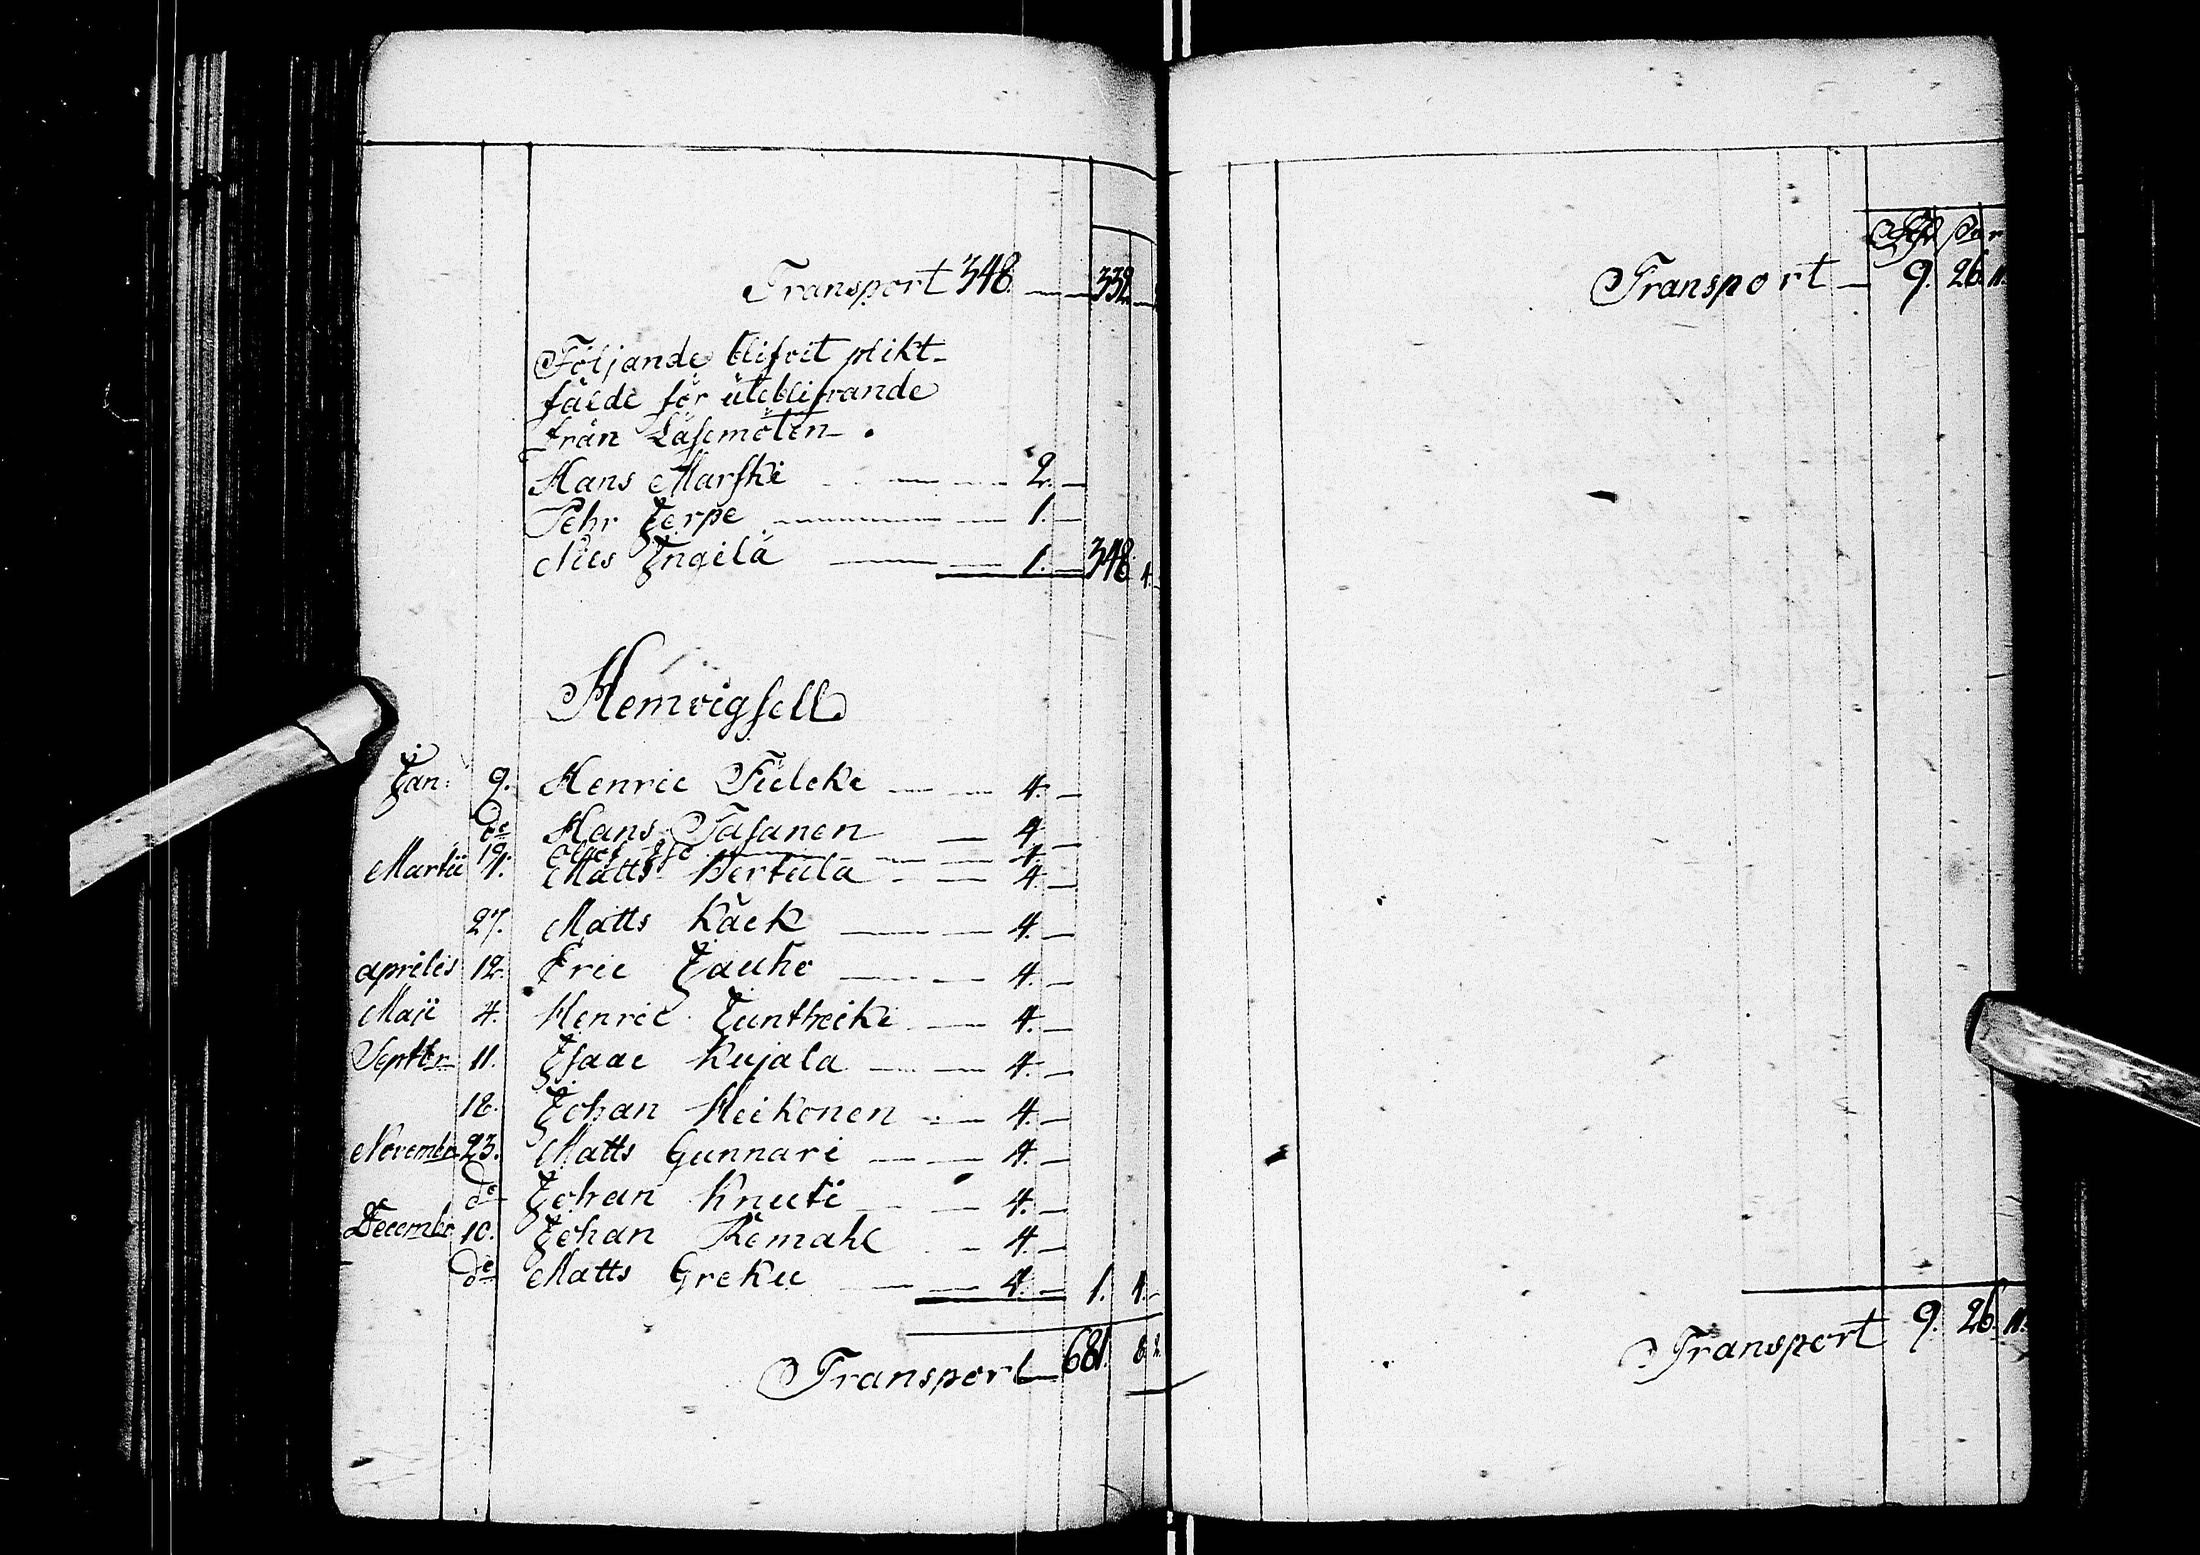 Transport 348. — 332. —
Följande blifvit plikt-
fälde för uteblifvande
från Läsemöten.
Hans Marski — 2. —
Pehr Jerpe — 1. —
Nils Ingila — 1. — 348. 4. —
Hemvigsell
Jan: 9. Henric Fileke — 4. —
do Hans Tasanen — 4. —
19. — 4. —
Martii 4. Matts Bertula — 4. —
27. Matts Käck — 4. —
aprilis 12. Eric Jauho — 4. —
Maji 4. Henric Junttuki — 4. —
Septbr 11. Isaac Kujala — 4. —
18. Johan Heikonen — 4. —
Novembr. 23. Matts Gunnari — 4. —
do Johan Knuti — 4. —
Decembr. 10. Johan Remahl — 4. —
do Matts Greku — 4. — 1. 4. —
Transport — 681. 8.
Transport — 9. 26. 11.
Transport 9. 26. 11.